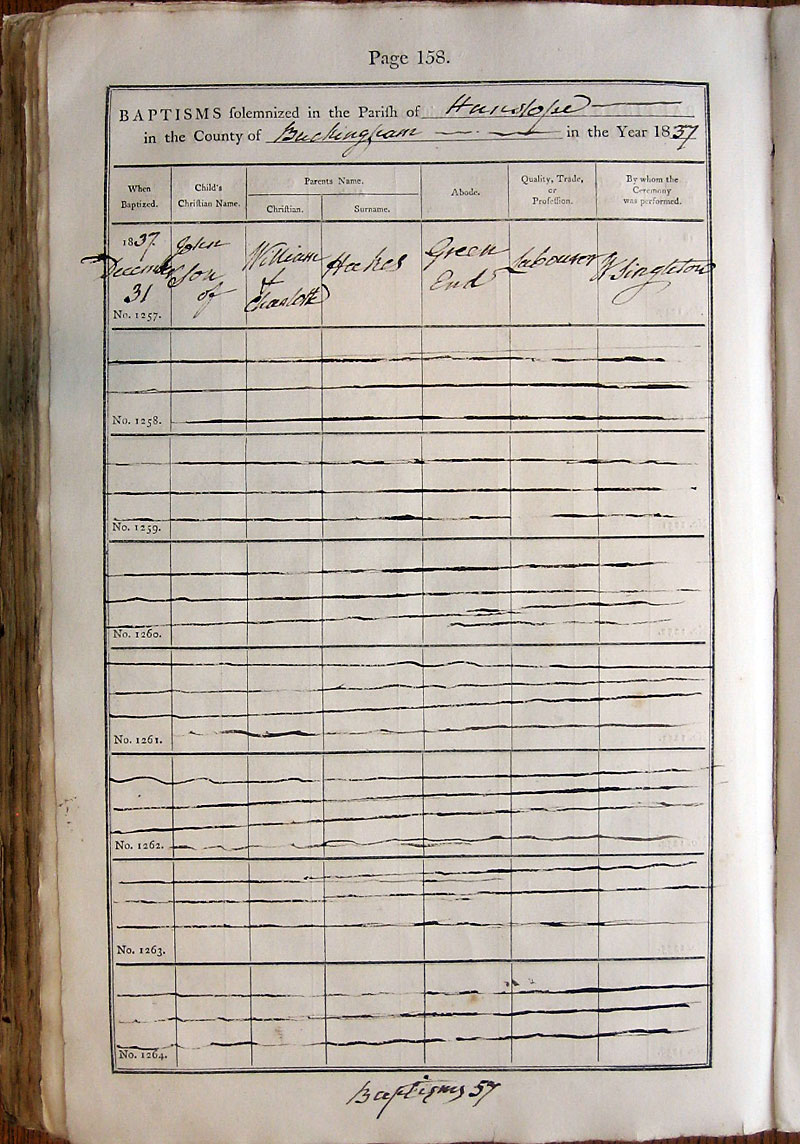 Page 158.
BAPTISMS solemnized in the Parish of Hanslope
in the County of Buckingham in the Year 1837
When Baptized.
Child's Christian Name.
Parents Name.
Christian.
Surname.
Abode.
Quality, Trade, or Profession.
By whom the Ceremony was performed.
1837.
December
31
No. 1257.
John
Son
of
William
&
Charlotte
Hakes
Green
End
Labourer
W Singleton
No. 1258.
No. 1259.
No. 1260.
No. 1261.
No. 1262.
No. 1263.
No. 1264.
Baptisms 57